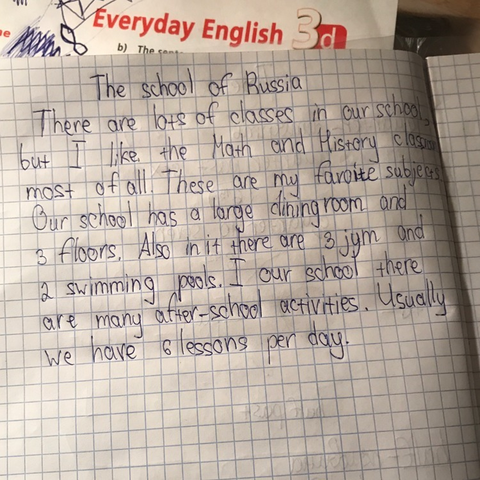 Everyday English 3d
b) The
The school of Russia
There are lots of classes in our school,
but I like the Math and History
most of all. These are my favoite subjects
Our school has a large diningroom and
3 floors. Also in it there are 3 jym and
2 swimming pools. I our school there
are many after-school activities. Usually
we have 6 lessons per day.